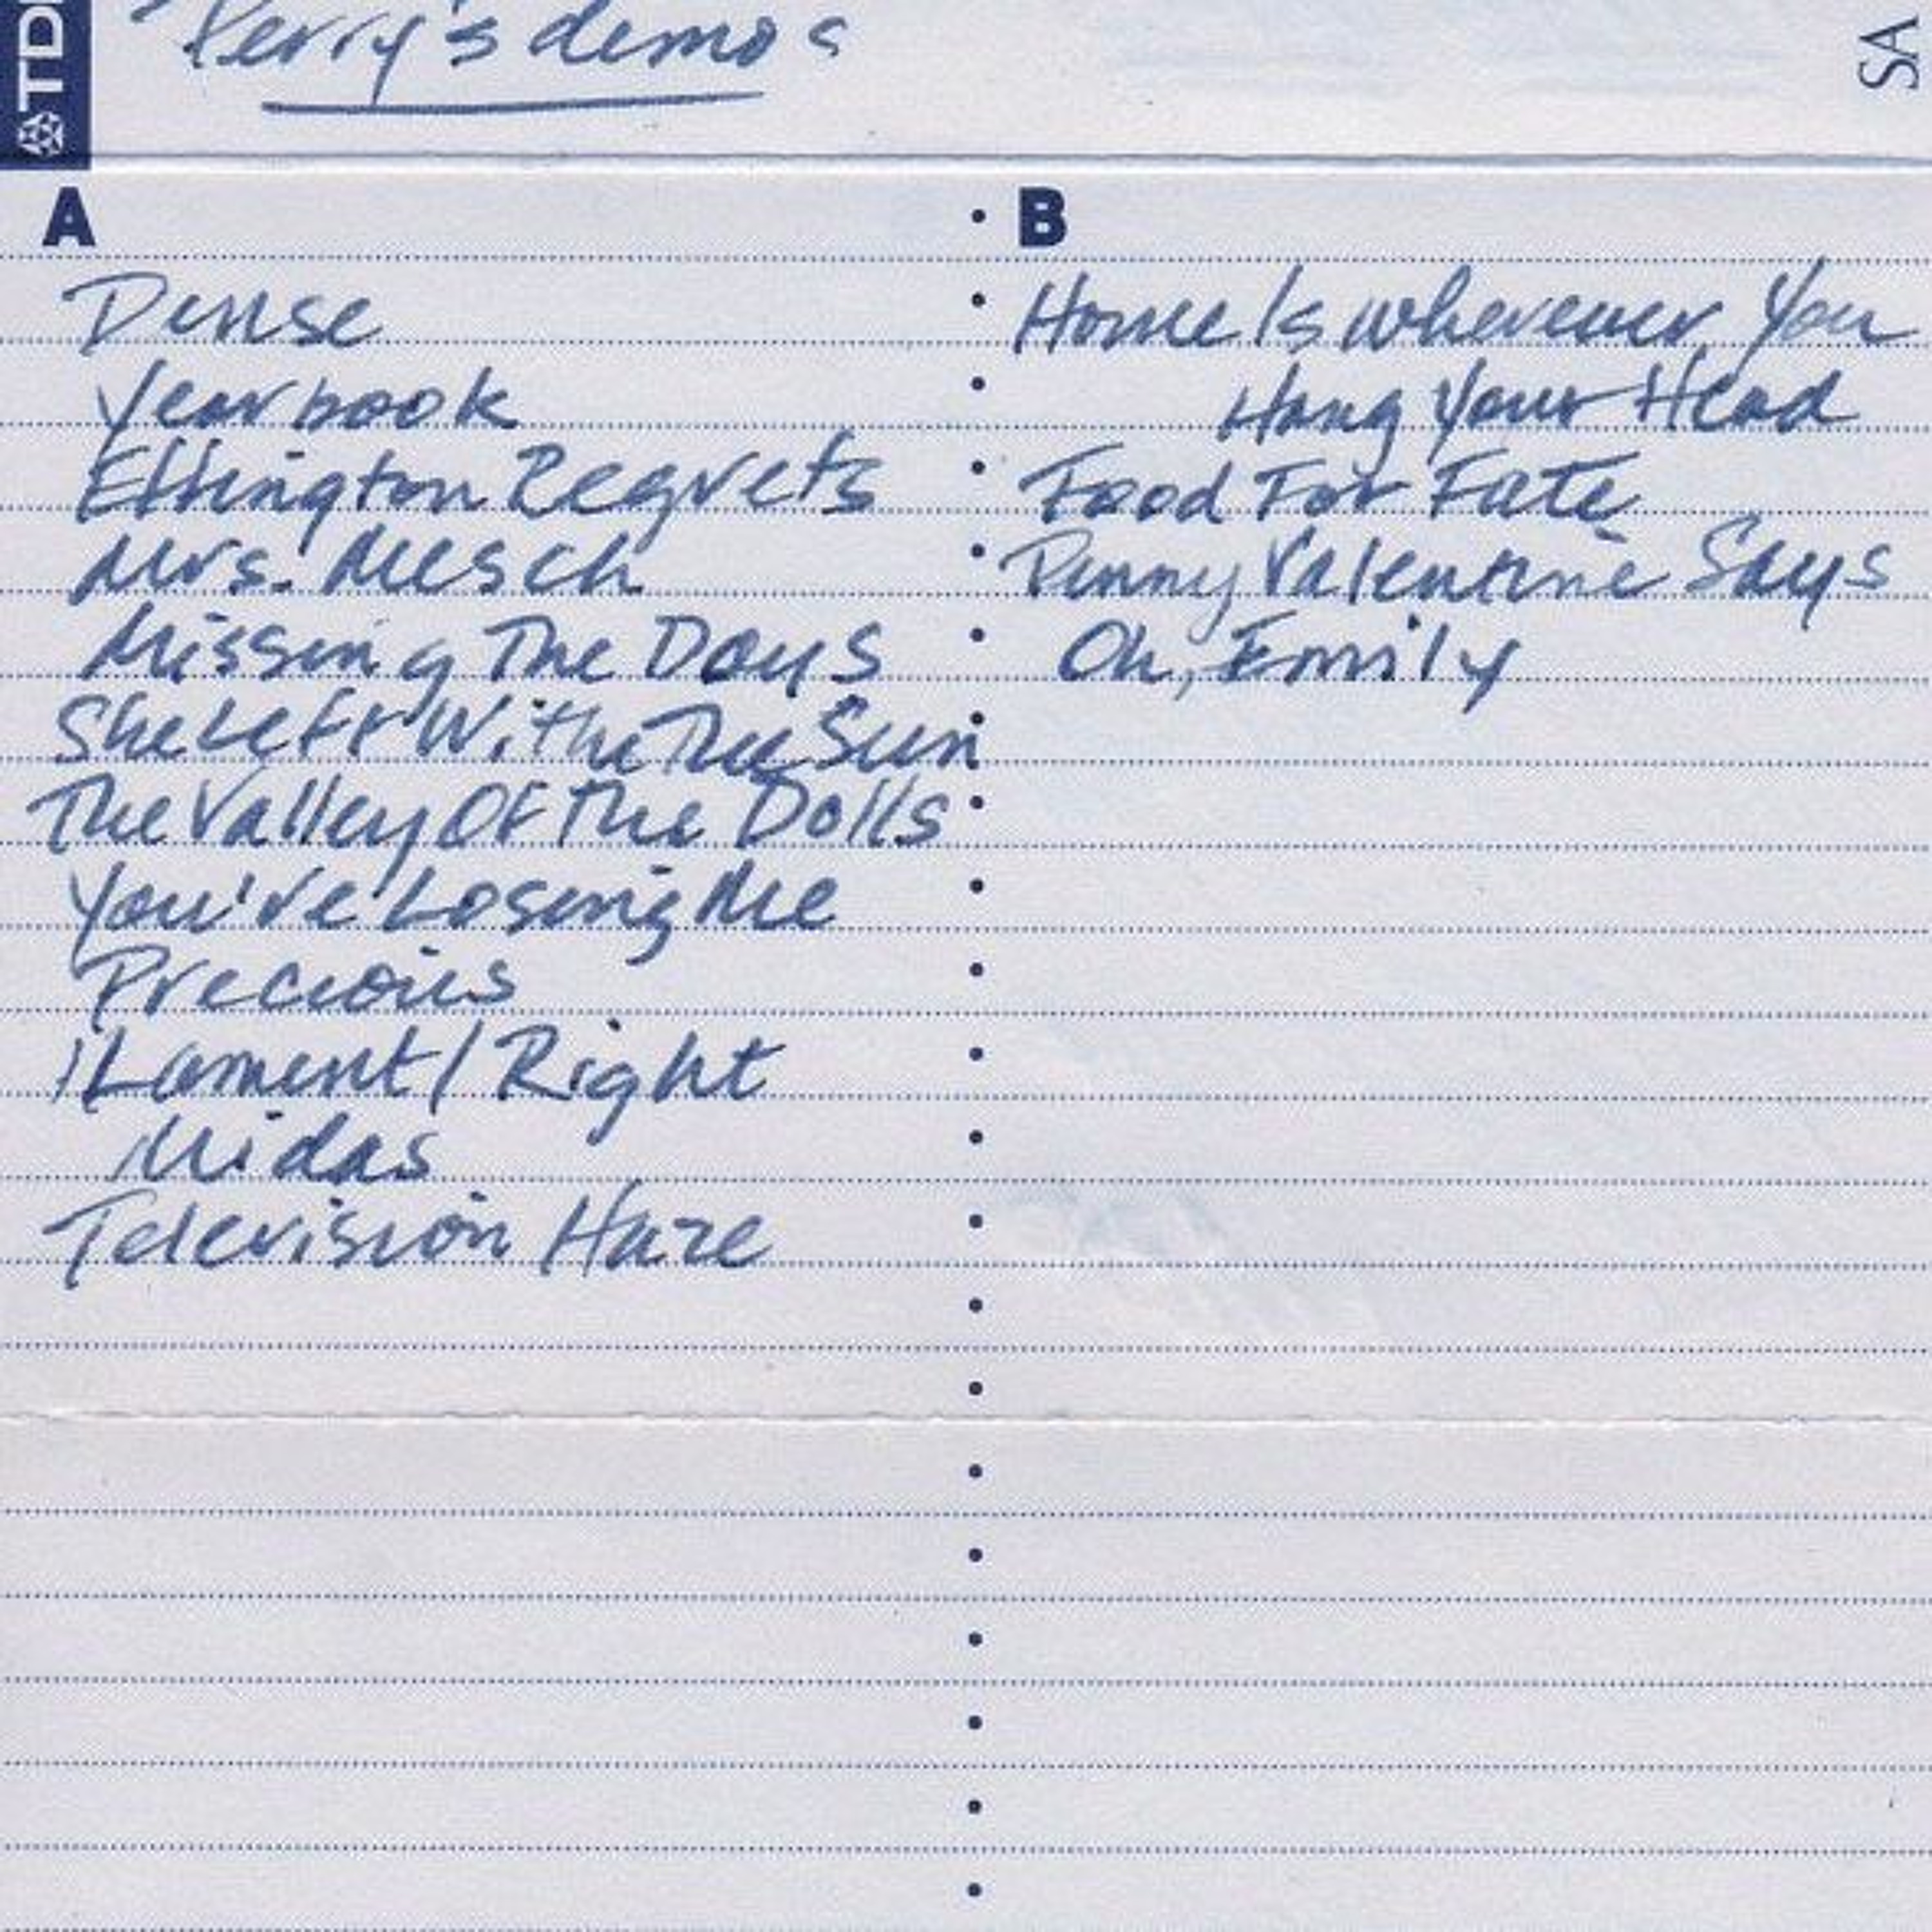 TDK
Perry's demos
SA
A
Dense
Yearbook
Effington Regrets
Mrs. Mesch
Missing The Days
She Left With The Sun
The Valley Of The Dolls
You've Losing Me
Precious
Lament / Right
Midas
Television Haze
B
Home Is wherever You
Hang Your Head
Food For Fate
Penny Valentine Says
Oh, Emily